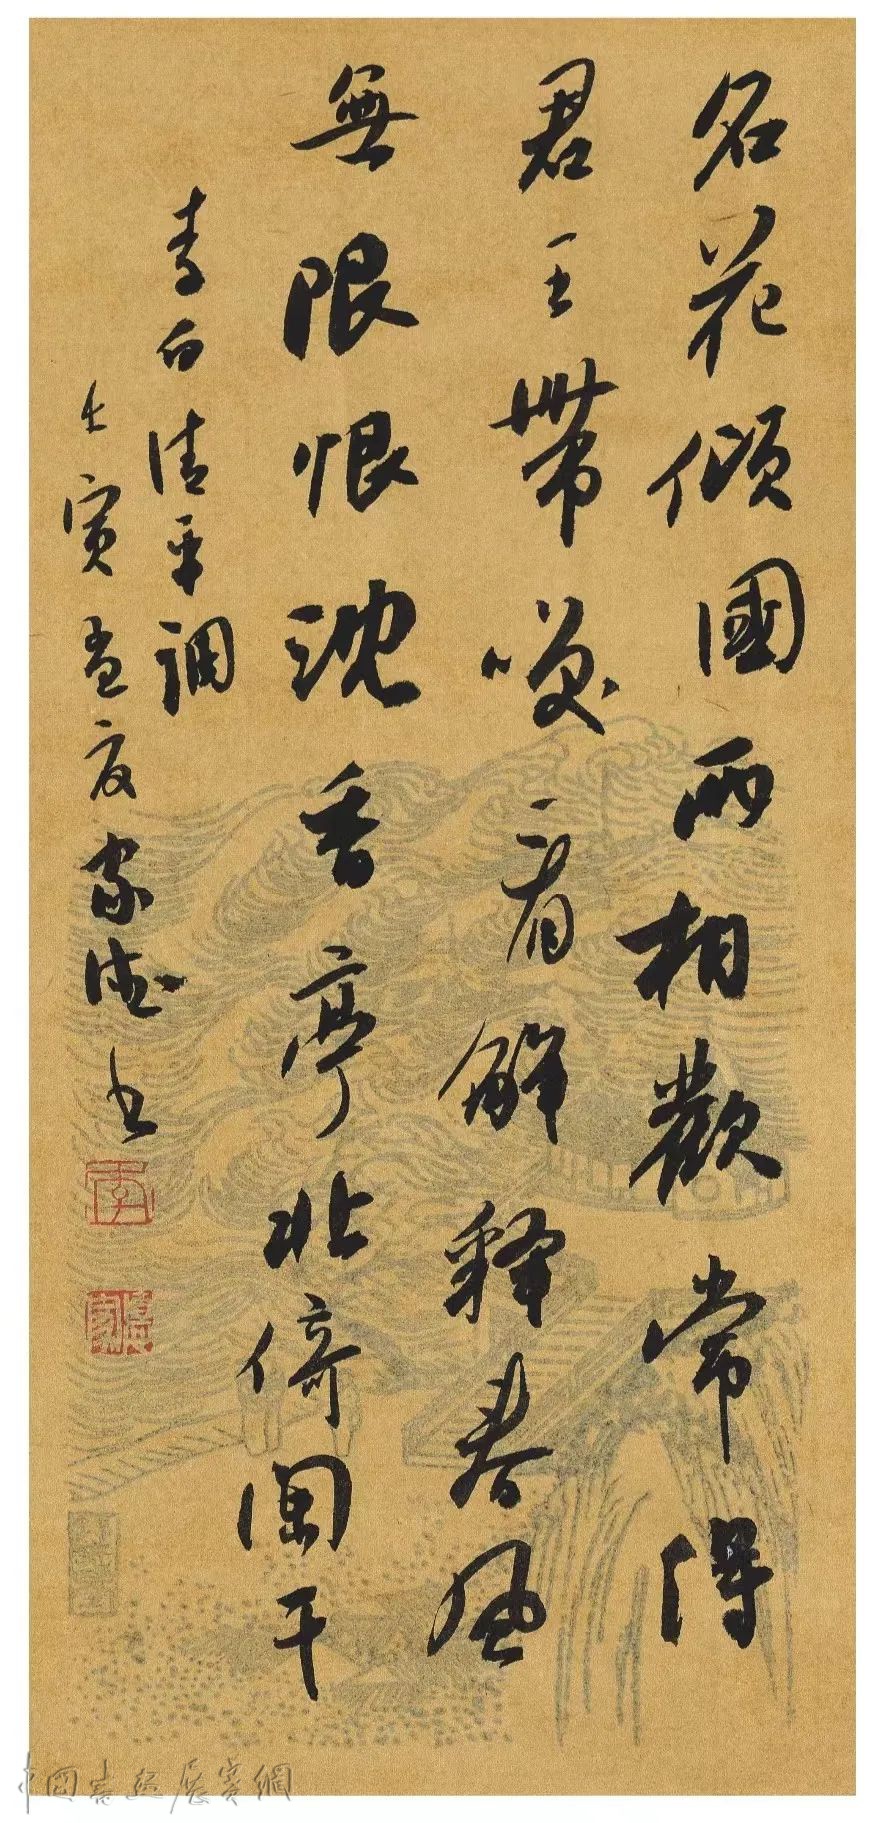 名花傾國兩相歡常得
君王帶咲看解釋春風
無限恨沈香亭北倚闌干
李白清平調
壬寅孟夏家德书
中國書画展賽網